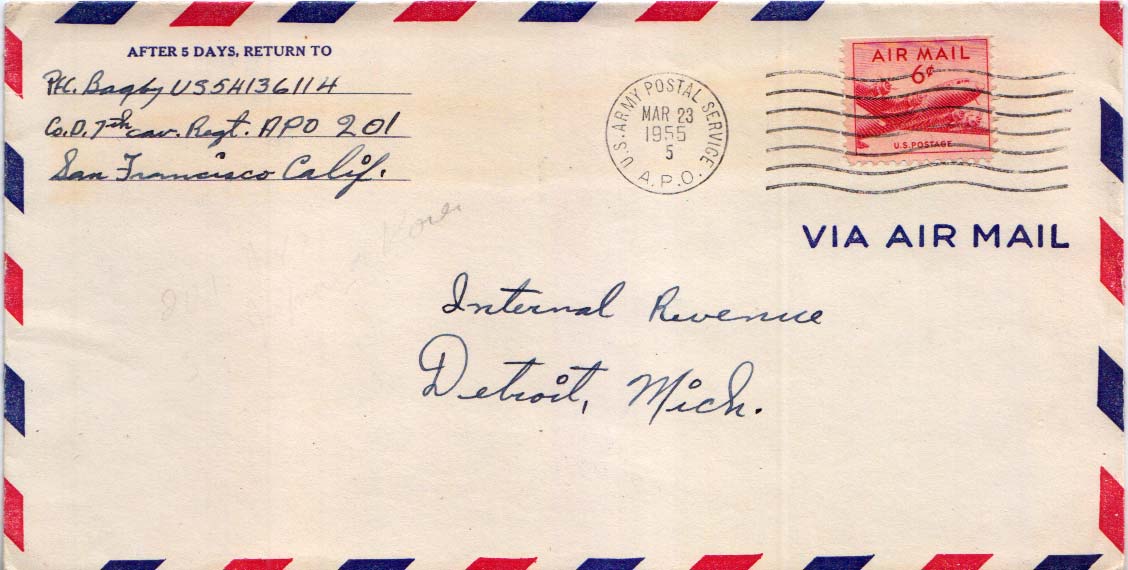 AFTER 5 DAYS, RETURN TO
Pfc. Bagby US54136114
Co.D. 7th cav. Regt. APO 201
San Francisco Calif.
U.S. ARMY POSTAL SERVICE
MAR 23
1955
5
A.P.O.
AIR MAIL
6¢
U.S. POSTAGE
VIA AIR MAIL
Internal Revenue
Detroit, Mich.